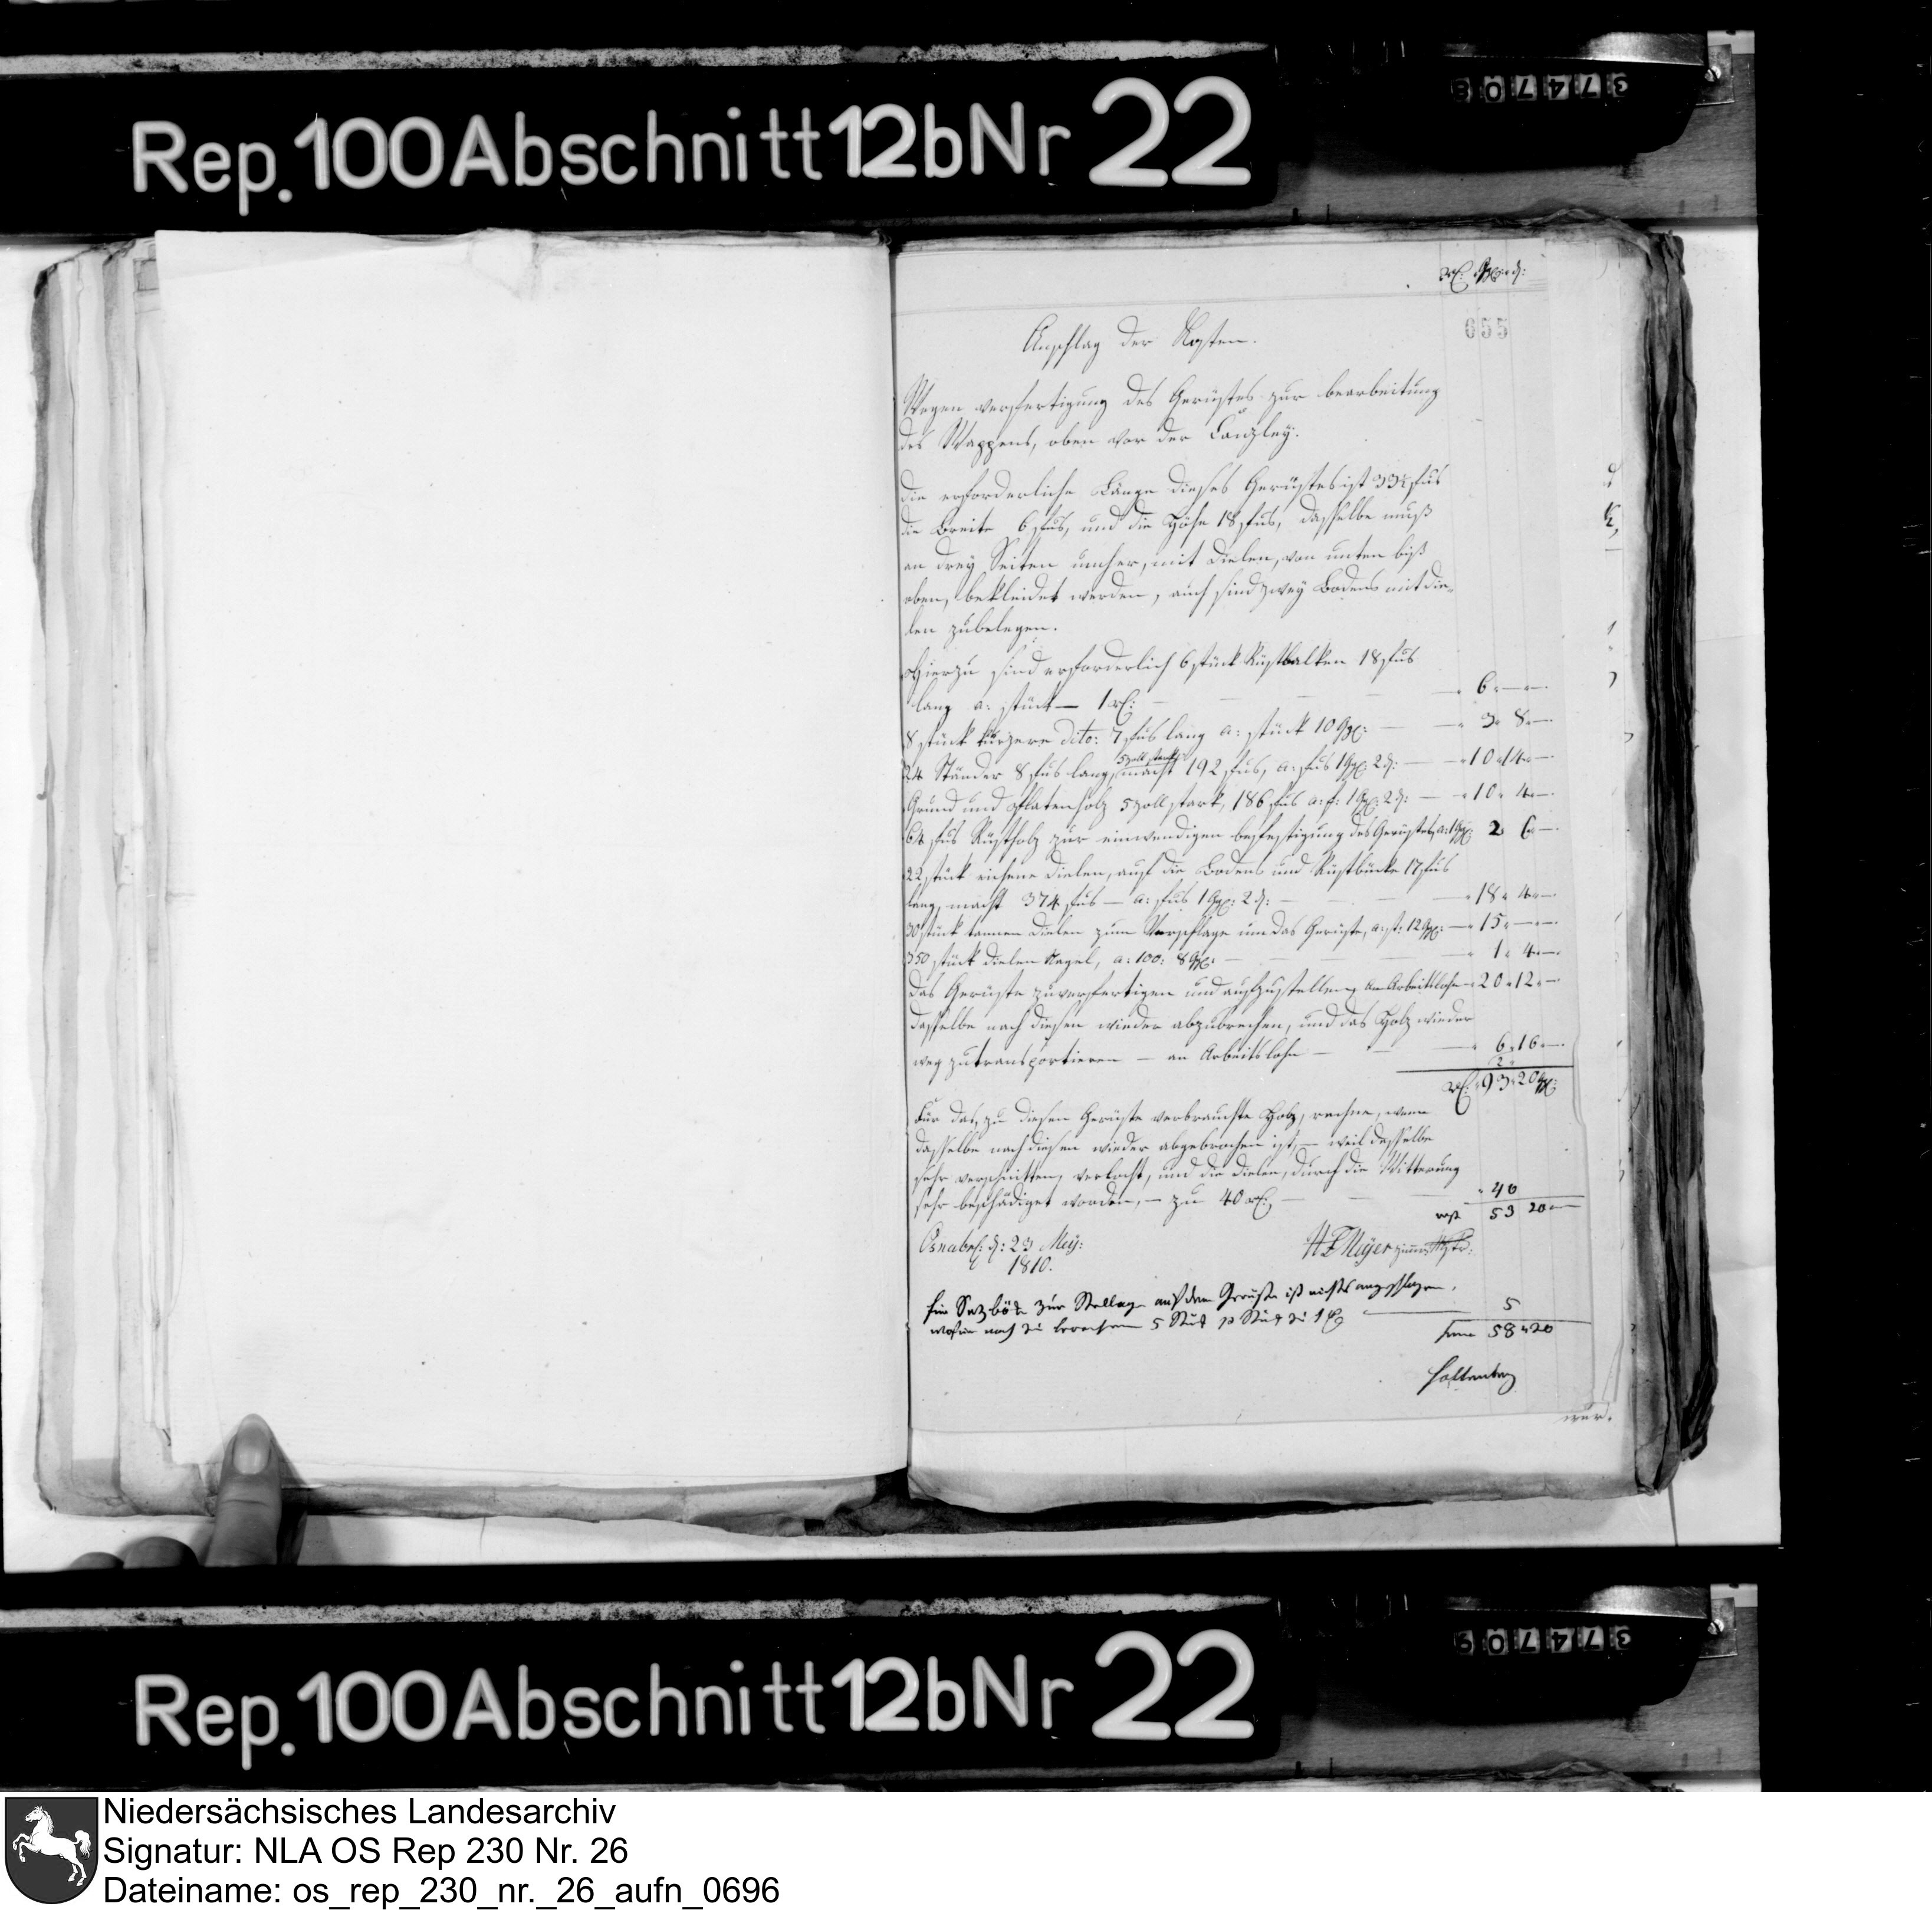 374708
Rep. 100 Abschnitt 12b Nr 22
rt: ggl: d:
655
Anschlag der Kosten.
Wegen verfertigung des Gerüstes zur bearbeitung
des Wappens, oben vor der Canzley.
die erforderliche Länge dieses Gerüstes ist 33½ fus
die Breite 6 fus, und die Höhe 18 fus, dasselbe muß
an drey Seiten umher, mit Dielen, von unten biß
oben, bekleidet werden, auch sind zwey Bodens mit die„
len zubelegen.
Hierzu sind erforderlich 6 stück Rüstbalken 18 fus
lang a: stück — 1 rt: — 6 " — " —
8 stück kürzere dito: 7 fus lang a: stück 10 ggl: — 3 " 8 " —
5 zoll stark
24 Ständer 8 fus lang, macht 192 fus, a: fus 1 ggl: 2 d: — 10 " 14 " —
Grund und Platenholz 5 zoll stark, 186 fus a: f: 1 ggl: 2 d: — 10 " 4 " —
64 fus Rüstholz zur einwendigen befestigung des Gerüstes, a: 1 ggl: 2 6 " —
22 stück eichene Dielen, auf die Bodens und Rüstbücke 17 fus
lang, macht 374 fus — a: fus 1 ggl: 2 d: — 18 " 4 " —
30 stück tannen Dielen zum Verschlage um das Gerüste, a: st: 12 ggl: — 15 " — " —
350 stück Dielen Nagel, a: 100: 8 ggl: — 1 " 4 " —
Das Gerüste zuverfertigen und aufzustellen, an Arbeitslohn " 20 " 12 " —
Dasselbe nach diesen wieder abzubrechen, und das Holz wieder
weg zutransportieren — an Arbeitslohn — 6 " 16 " —
2
rt: " 93 " 20 ggl:
Für das, zu diesen Gerüste verbrauchte Holz, rechne, wenn
dasselbe nach diesen wieder abgebrochen ist, — weil dasselbe
sehr verschnitten, verlocht, und die Dielen, durch die Witterung
sehr beschädiget worden, — zu 40 rt: — " 40
rest 53 20 " —
Osnabr: d: 23 Mey:
1810.
H E Meyer Zimmer Mstr:
für Satzböke zur Stellage auf dem Gerüste ist nichts angeschlagen,
wofür noch zu berechnen 5 Stück p Stück zu 1 rt — 5
suma 58 " 20
Hollenberg
wur.
374709
Rep. 100 Abschnitt 12b Nr 22
Niedersächsisches Landesarchiv
Signatur: NLA OS Rep 230 Nr. 26
Dateiname: os_rep_230_nr._26_aufn_0696